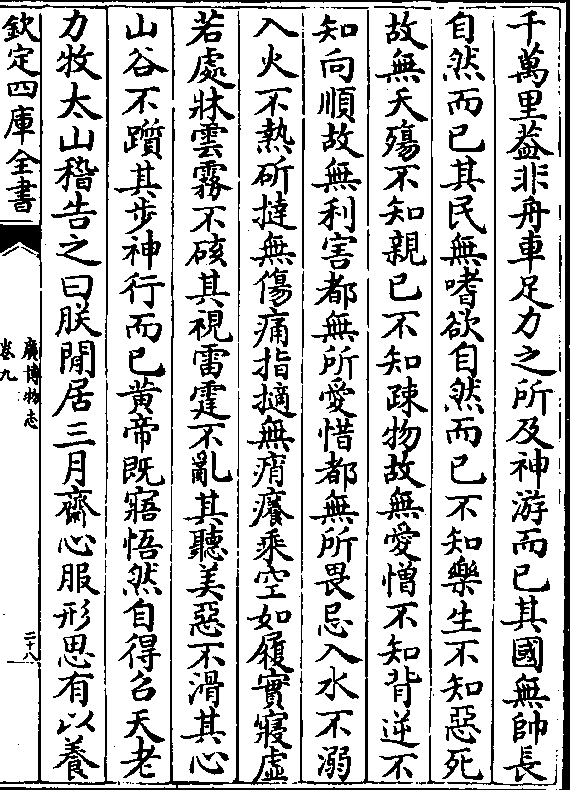 千萬里葢非舟車足力之所及神游而已其國無帥長
自然而已其民無嗜欲自然而已不知樂生不知惡死
故無夭殤不知親已不知踈物故無愛憎不知背逆不
知向順故無利害都無所愛惜都無所畏忌入水不溺
入火不熱斫撻無傷痛指擿無痟癢乘空如履實寢虛
若處牀雲霧不硋其視雷霆不亂其聽美惡不滑其心
山谷不躓其步神行而已黃帝既寤悟然自得召天老
力牧太山稽告之曰朕閒居三月齋心服形思有以養
欽定四庫全書
廣博物志
卷九
二十八